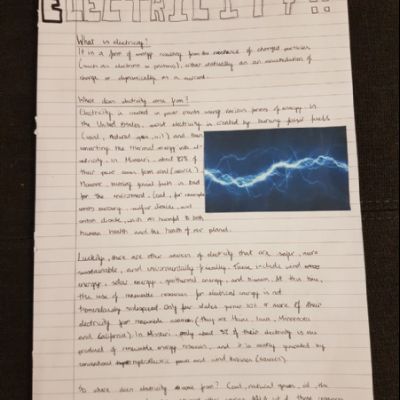 ELECTRICITY!!
What is electricity?
It is a form of energy resulting from the existence of charged particles
(such as electrons or protons), either statically as an accumulation of
charge or dynamically as a current.
What does electricity come from?
Electricity is created in power plants using various forms of energy. In
the United States, most electricity is created by burning fossil fuels
(coal, natural gas, oil) and then
converting the thermal energy into el-
ectricity. In Missouri, about 82% of
their power comes from coal (source).
However, burning fossil fuels is bad
for the environment. Coal, for example
emits mercury, sulfur dioxide, and
carbon dioxide, which is harmful to both
human health and the health of our planet.
Luckily, there are other sources of electricity that are safer, more
sustainable, and environmentally friendly. These include wind
energy, solar energy, geothermal energy, and biomass. At this time,
the use of renewable resources for electrical energy is not
tremendously widespread. Only few states gain 10% or more of their
electricity from renewable sources (they are Maine, Iowa, Minnesota
and California). In Missouri, only about 3% of their electricity is the
product of renewable energy resources, and it is mostly generated by
conventional hydroelectric power and wind turbines (sources).
So where does electricity come from? Coal, natural gases, oil, the